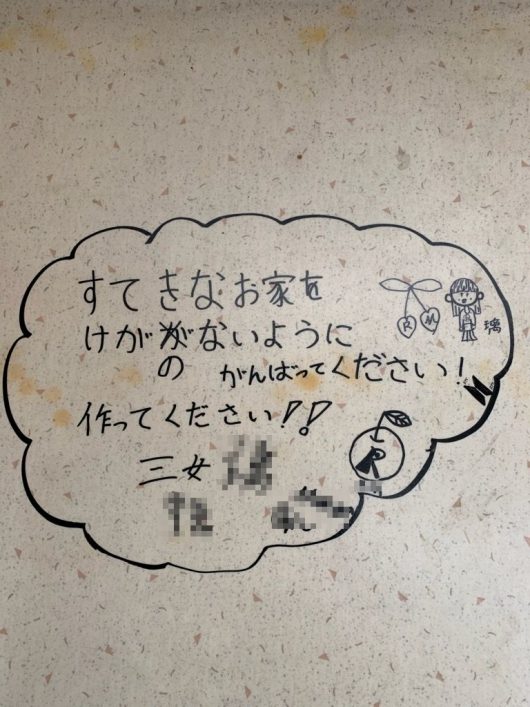 すてきなお家を
けががないように
の がんばってください!
作ってください!!
三女
R M
璃
R